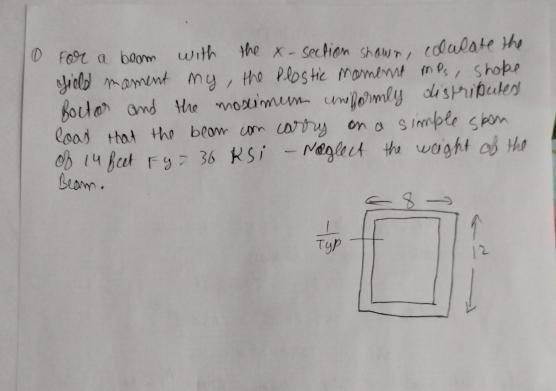 ① For a beam with the x-section shown, calculate the
yield moment my, the Plastic moment mps, shape
factor and the maximum uniformly distributed
load that the beam can carry on a simple span
of 14 feet Fy = 36 KSi - Neglect the weight of the
Beam.
8
1
Typ
12